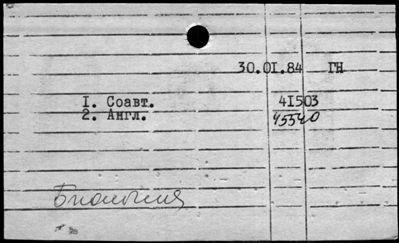 30.01.84 ГН
1. Соавт. 41503
2. Англ. 45540
Биология